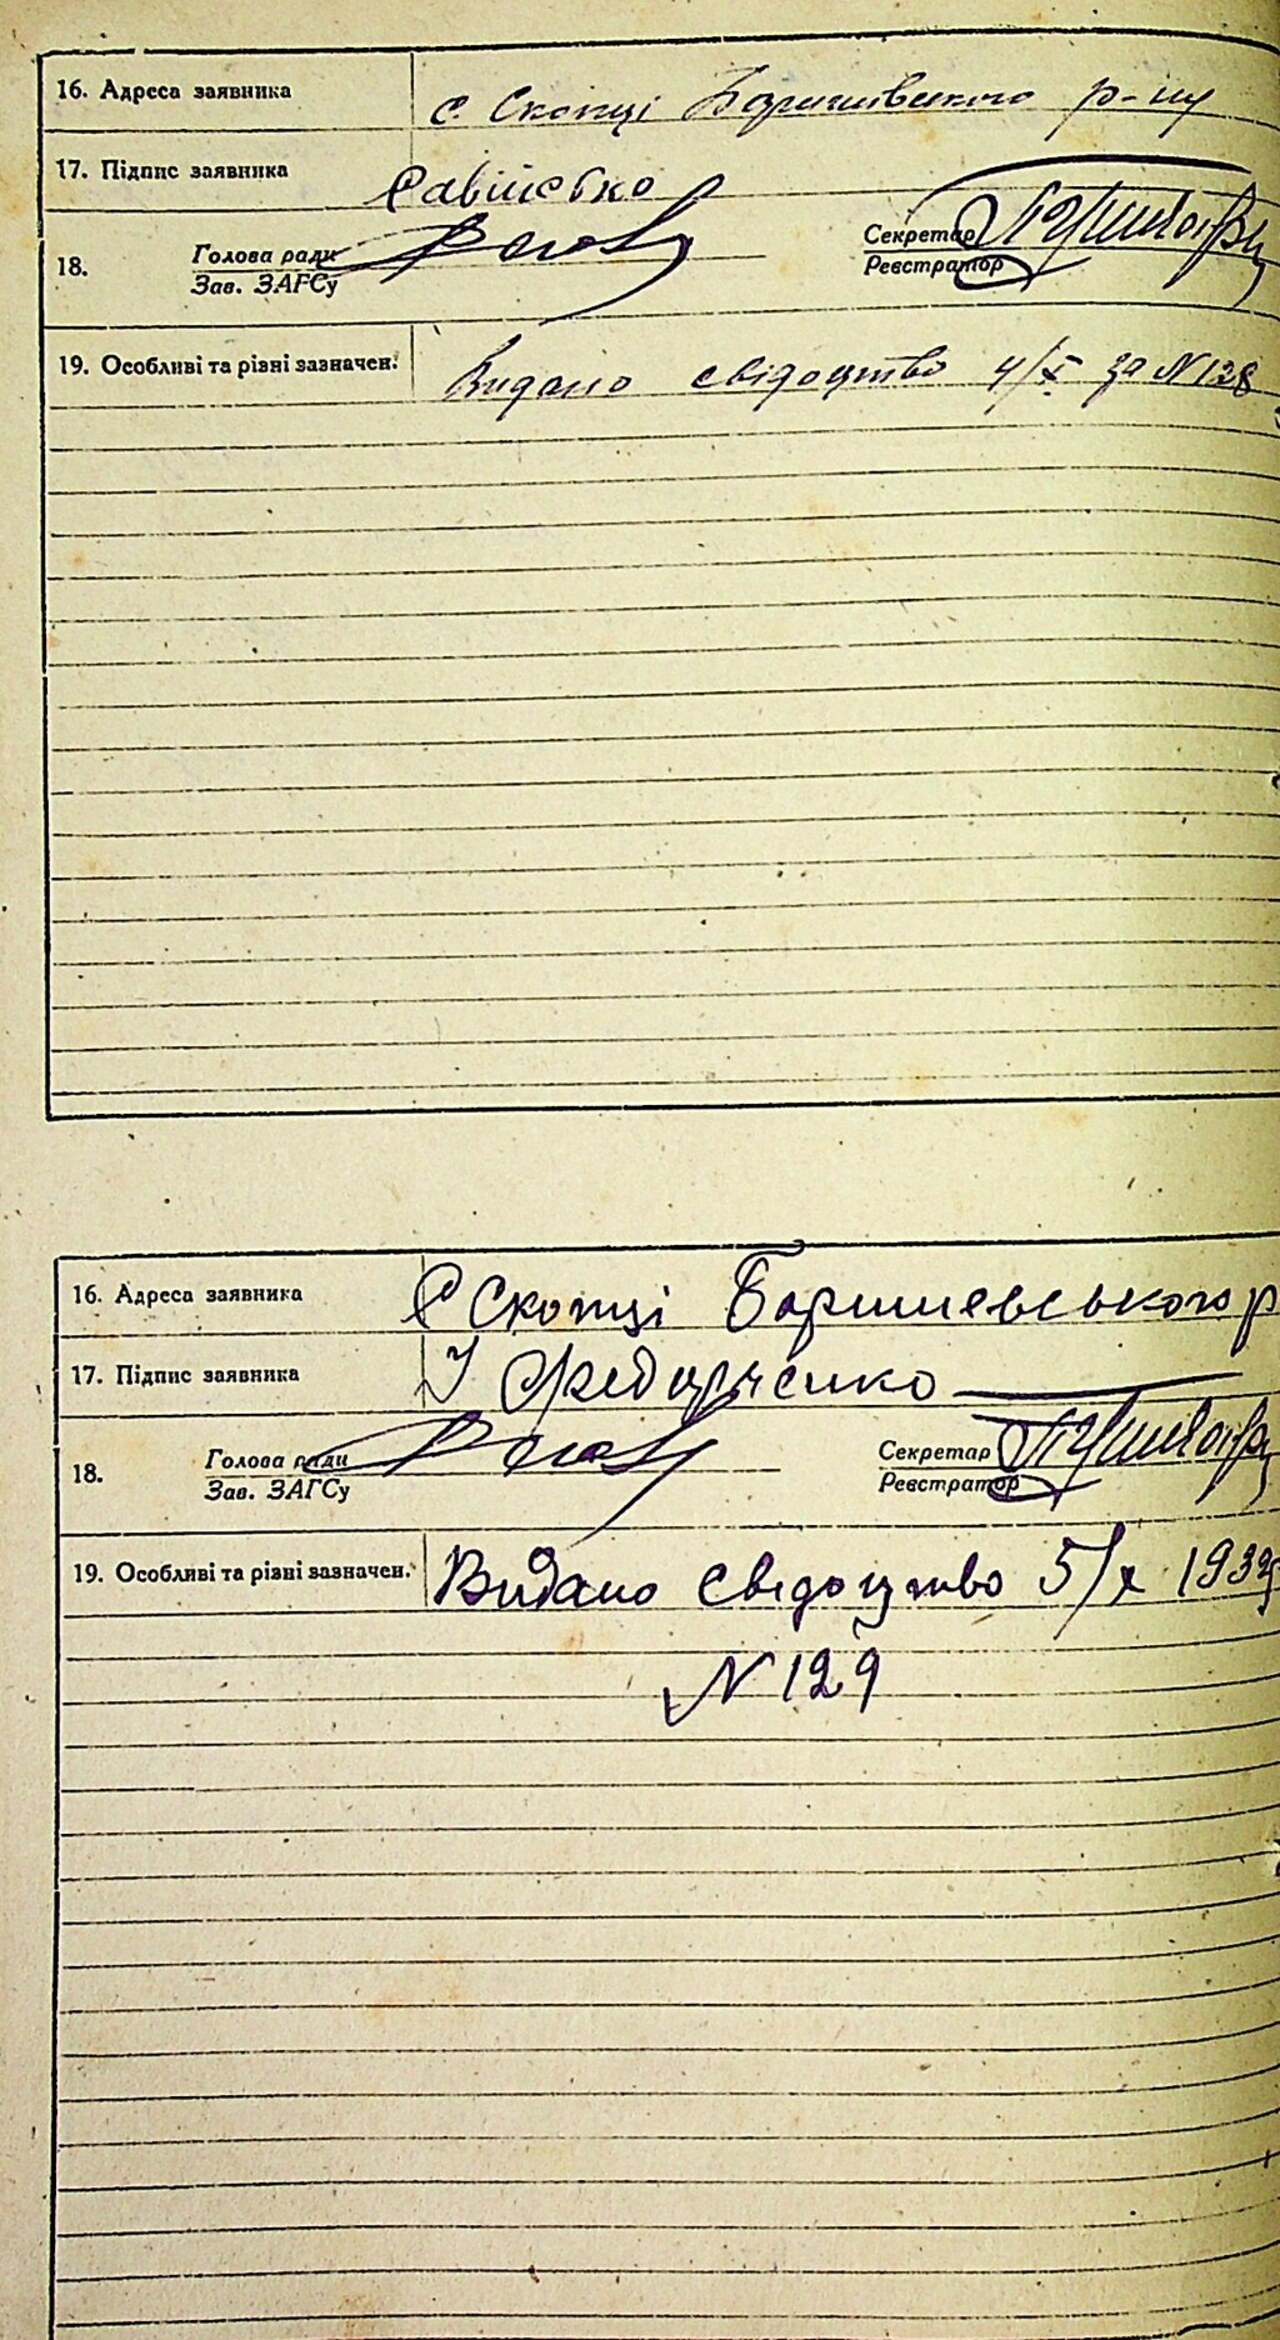 16. Адреса заявника с. Скопці Баришівського р-ну
17. Підпис заявника
18. Голова ради Секретар
Зав. ЗАГСу Реєстратор
19. Особливі та різні зазначен. Видано свідоцтво 4/X за N 128
16. Адреса заявника С Скопці Баришевського р
17. Підпис заявника І Федорченко
18. Голова ради Секретар
Зав. ЗАГСу Реєстратор
19. Особливі та різні зазначен. Видано свідоцтво 5/х 193
N 129